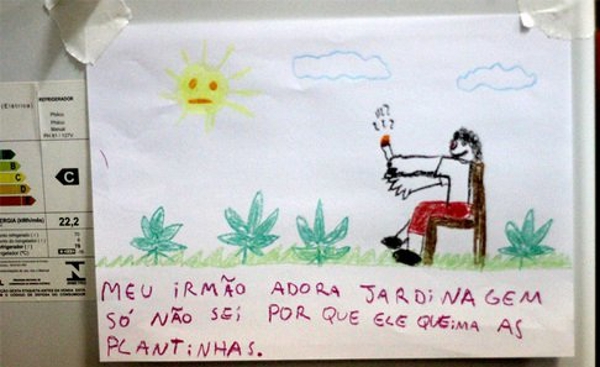 (Elétrico) REFRIGERADOR
Philco
Philco
Manual
B
C
D
E
C
ERGIA (kWh/mês) 22,2
refrigerador
MEU IRMÃO ADORA JARDINAGEM
SÓ NÃO SEI POR QUE ELE QUEIMA AS
PLANTINHAS.